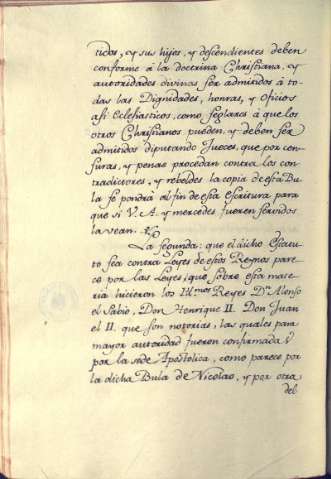 tidos, y sus hijos, y descendientes deben
conforme á la doctrina Christiana, y
autoridades divinas ser admitidos á to-
das las Dignidades, honras, y Oficios
asi Eclesiasticos, como seglares á que los
otros Christianos pueden, y deben ser
admitidos diputando Jueces, que por cen-
suras, y penas procedan contra los con-
tradictores, y rebeldes la copia de esta Bu-
la se pondrá al fin de esta Escritura para
que si V. A. y mercedes fueren servidos
la vean.
La segunda: que el dicho Estatu-
to sea contra Leyes de estos Reynos pare-
ce por las Leyes, que sobre esta mate-
ria hicieron los Ill.mos Reyes Dn. Alonso
el Sabio, Don Henrique II. Don Juan
el II. que son notorias; las quales para
mayor autoridad fueron confirmadas
por la sede Apostolica, como parece por
la dicha Bula de Nicolao, y por otra
del